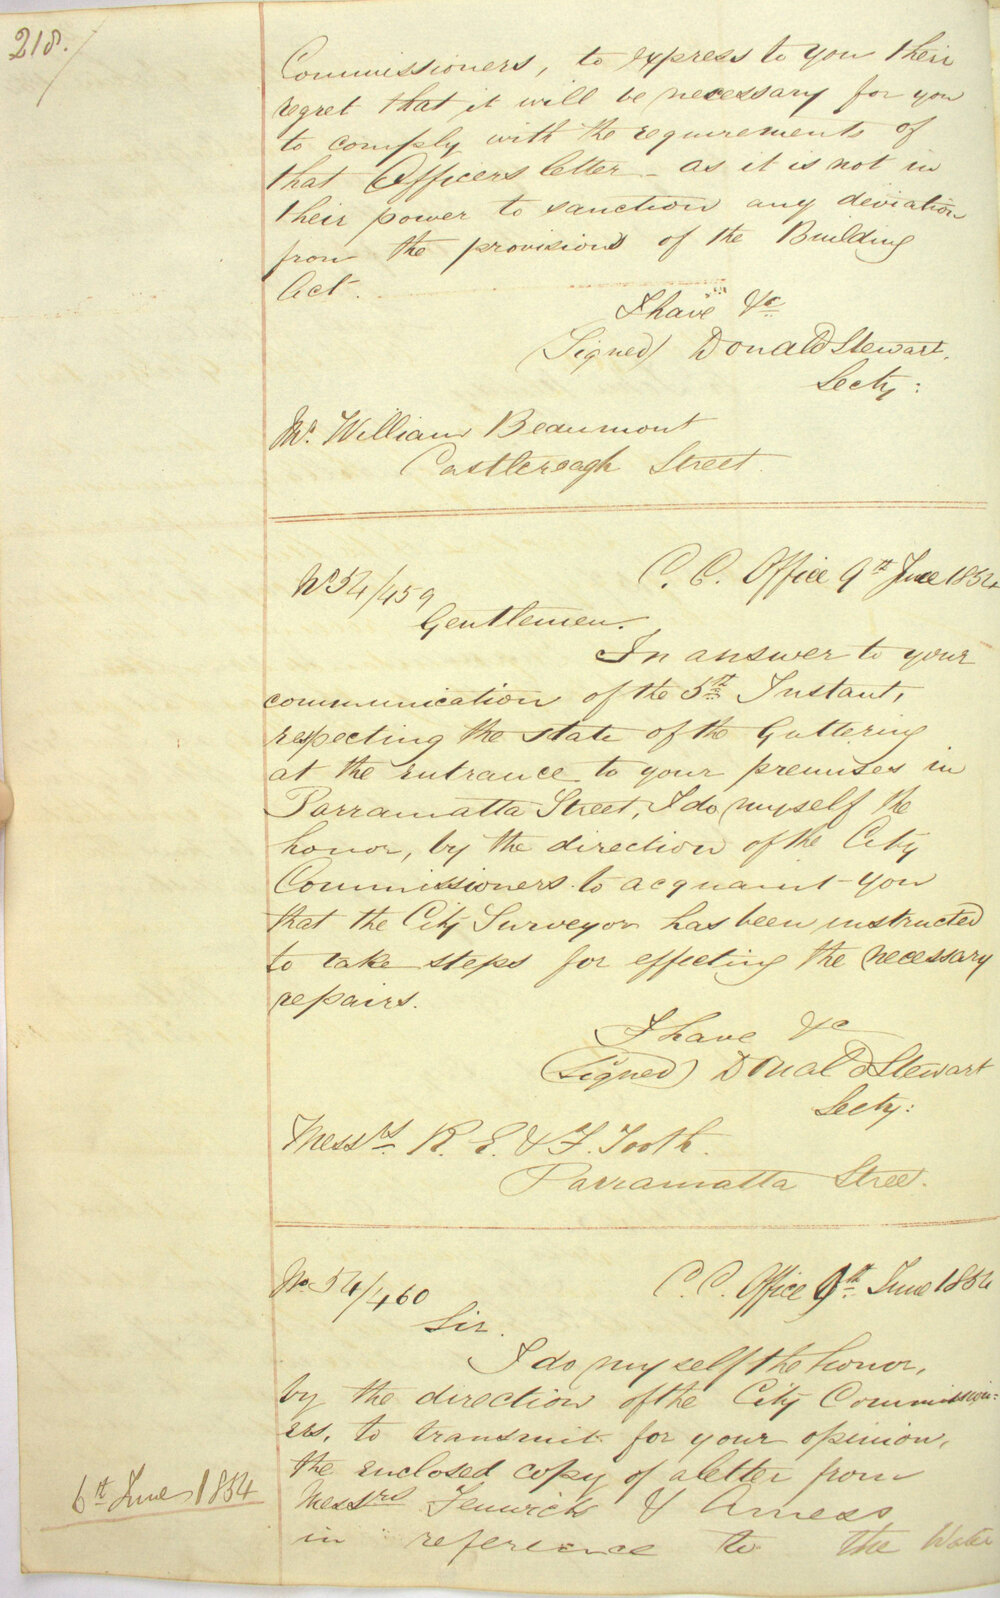 218.
Commissioners, to express to you their
regret that it will be necessary for you
to comply with the requirements of
that Officers letter - as it is not in
their power to sanction any deviation
from the provisions of the Building
Act.
I have &c
(Signed) Donald Stewart.
Secty:
Mr. William Beaumont
Castlereagh Street.
No 54/459
C. C. Office 9th June 1854
Gentlemen.
In answer to your
communication of the 5th Instant,
respecting the state of the Guttering
at the entrance to your premises in
Parramatta Street, I do myself the
honor, by the direction of the City
Commissioners to acquaint you
that the City Surveyor has been instructed
to take steps for effecting the necessary
repairs.
I have &c
(Signed) Donald Stewart
Secty:
Messrs R. E. & F. Tooth.
Parramatta Street.
No 54/460
C. C. Office 9th June 1854
Sir.
I do myself the honor,
by the direction of the City Commission=
ers, to transmit for your opinion,
the enclosed copy of a letter from
6th June 1854
Messrs Fenwick &
in reference to the Water